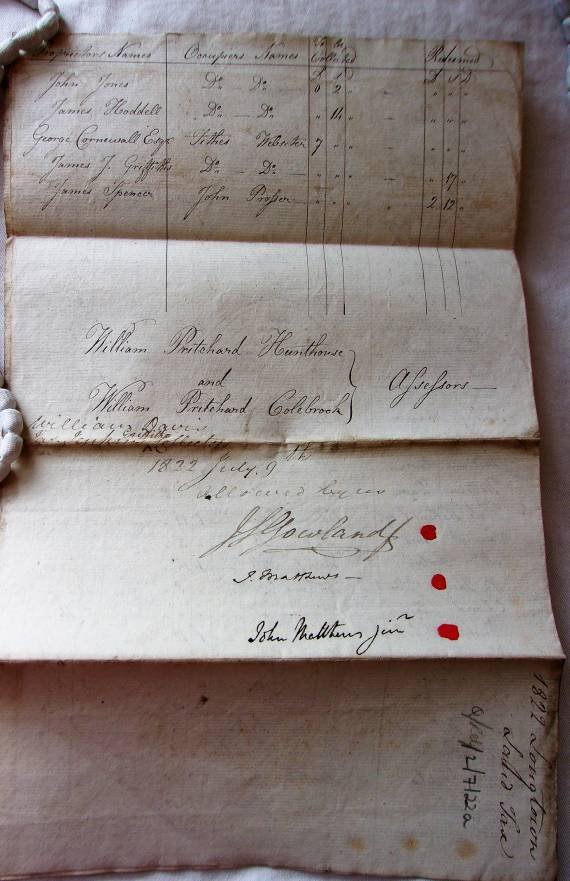 Proprietors Names Occupiers Names To be Collected Redeemed
£ s £ s D
John Jones Do Do 0 2 " " " "
James Hoddell Do Do " 14 " " " "
George Cornewall Esqr Tithes Webster 7 " " " " "
James J. Griffiths Do Do " " " " 17 "
James Spencer John Prosser " " " 2 12 "
William Pritchard Hunthouse
and
William Pritchard Colebrook } Assessors
William Davis
1822 July. 9th
allowed by us
J Matthews
John Matthews Junr
1822 Longtown
Land Tax
Q/REL/2/7/22a